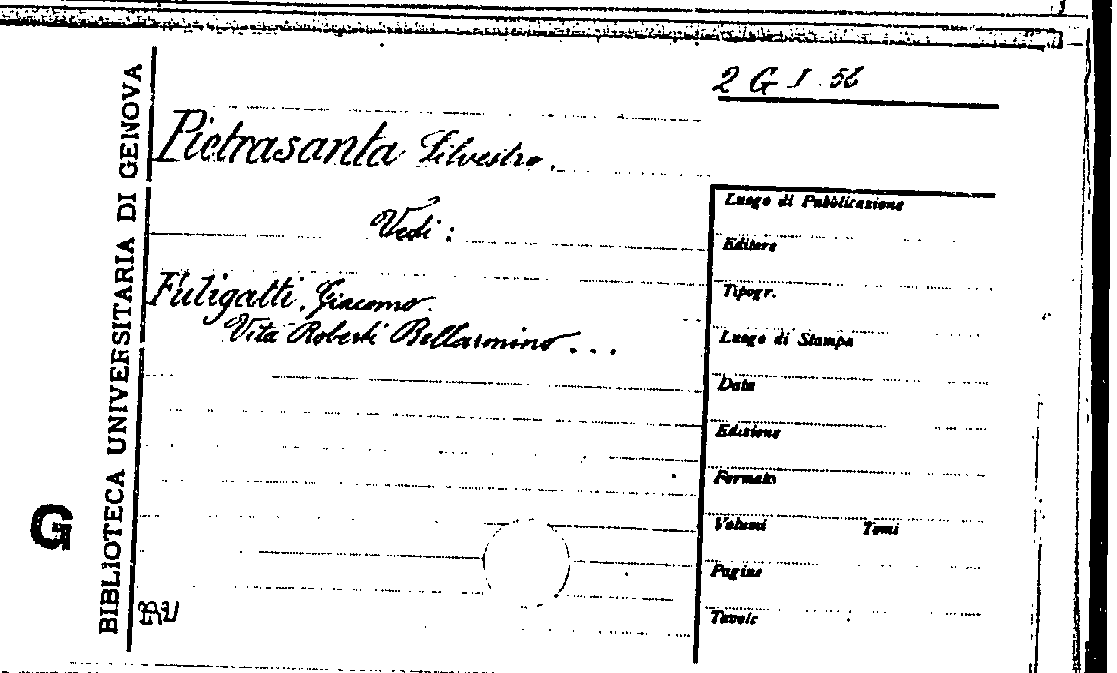 2 G I 56
Pietrasanta Silvestro.
Vedi:
Fuligatti, Giacomo.
Vita Roberti Bellarmino...
BIBLIOTECA UNIVERSITARIA DI GENOVA
G
Luogo di Pubblicazione
Editore
Tipogr.
Luogo di Stampa
Data
Edizione
Formato
Volumi Tomi
Pagine
Tavole